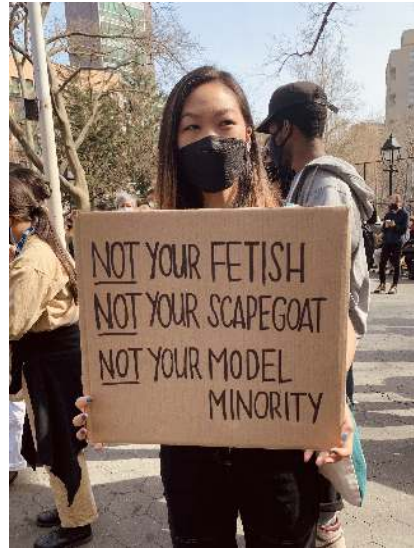 NOT YOUR FETISH
NOT YOUR SCAPEGOAT
NOT YOUR MODEL
MINORITY